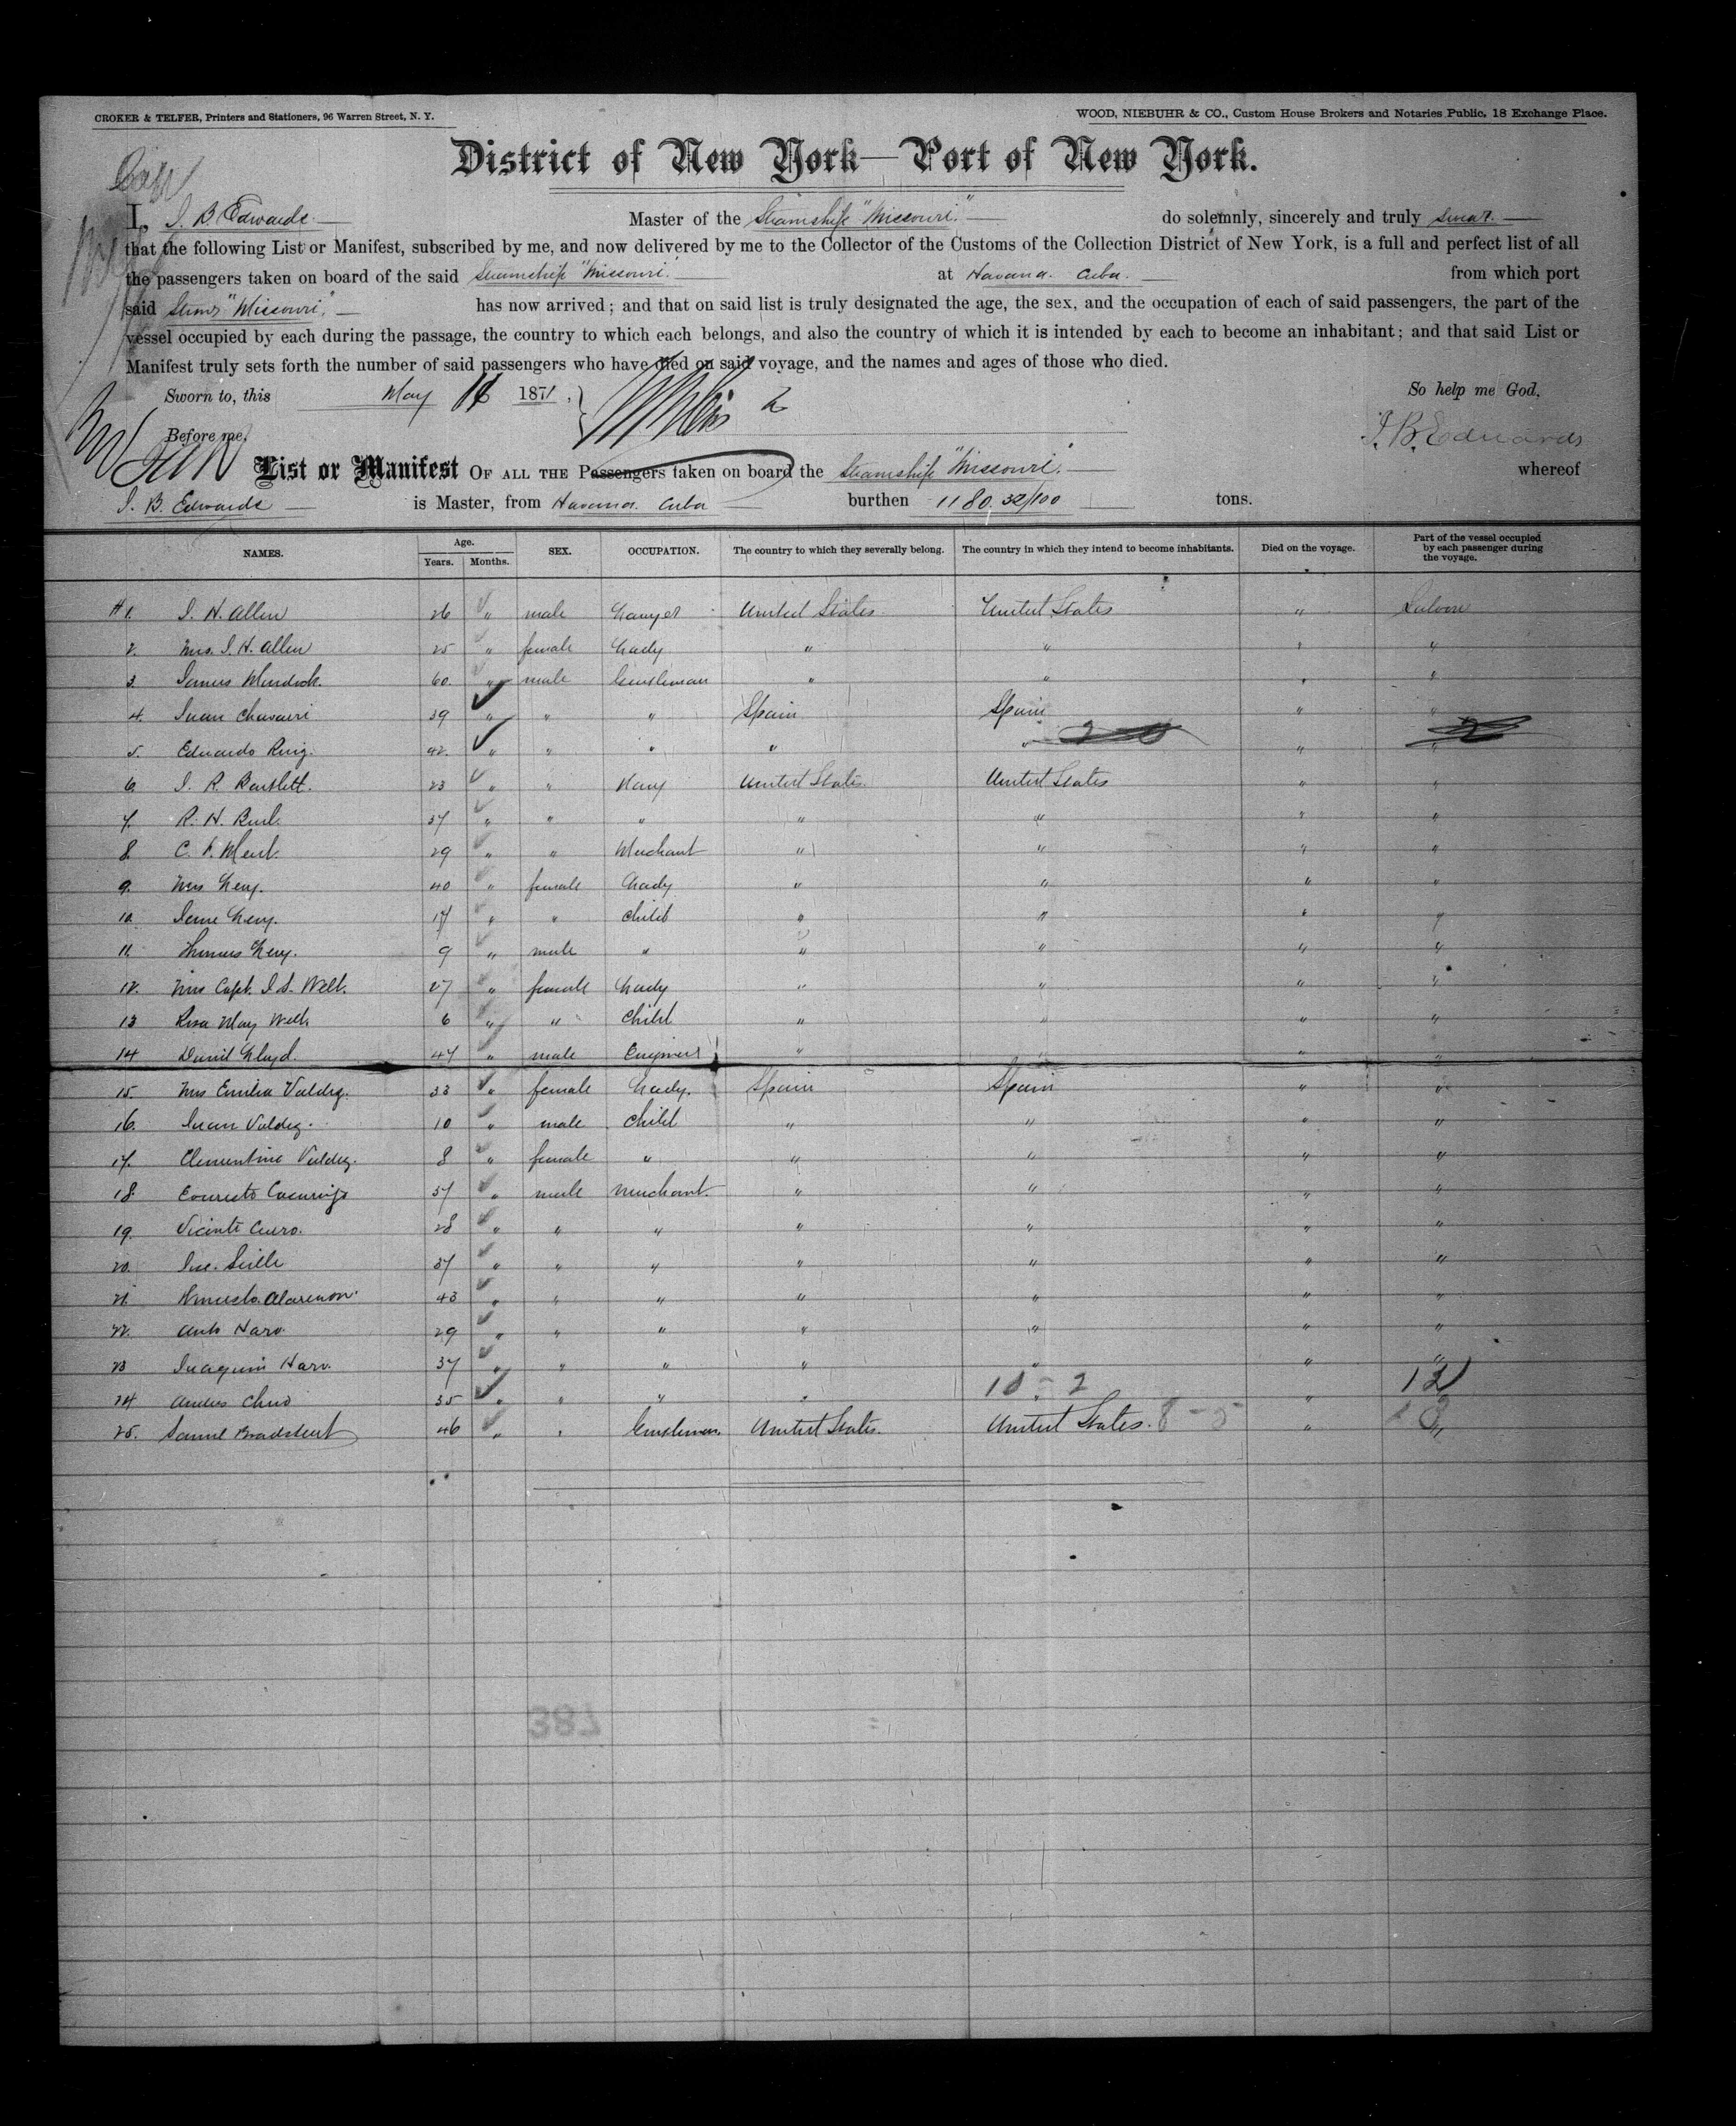 CROKER & TELFER, Printers and Stationers, 96 Warren Street, N. Y.
WOOD, NIEBUHR & CO., Custom House Brokers and Notaries Public, 18 Exchange Place.
District of New York—Port of New York.
I, J. B. Edwards Master of the Steamship "Missouri" do solemnly, sincerely and truly swear
that the following List or Manifest, subscribed by me, and now delivered by me to the Collector of the Customs of the Collection District of New York, is a full and perfect list of all
the passengers taken on board of the said Steamship "Missouri" at Havana. Cuba. from which port
said Stmr "Missouri" has now arrived; and that on said list is truly designated the age, the sex, and the occupation of each of said passengers, the part of the
vessel occupied by each during the passage, the country to which each belongs, and also the country of which it is intended by each to become an inhabitant; and that said List or
Manifest truly sets forth the number of said passengers who have died on said voyage, and the names and ages of those who died.
Sworn to, this May 16 1871, So help me God,
Before me, J. B. Edwards
List or Manifest OF ALL THE Passengers taken on board the Steamship "Missouri" whereof
J. B. Edwards is Master, from Havana. Cuba burthen 1180. 32/100 tons.
NAMES. Age. Years. Months. SEX. OCCUPATION. The country to which they severally belong. The country in which they intend to become inhabitants. Died on the voyage. Part of the vessel occupied by each passenger during the voyage.
#1. J. H. Allen 26 " male Lawyer United States United States " Saloon
2. Mrs. J. H. Allen 25 " female Lady " " " "
3. James Murdock. 60. " male Gentleman " " " "
4. Juan 39 " " " Spain Spain " "
5. Eduardo Ruiz. 42. " " " " " " "
6. J. R. Bartlett. 23 " " Navy United States. United States " "
7. R. H. 37 " " " " " " "
8. C. F. 29 " " Merchant " " " "
9. Mrs Levy. 40 " female Lady " " " "
10. Levy. 17 " " child " " " "
11. Thomas Levy. 9 " male " " " " "
12. Mrs Capt. 27 " female Lady " " " "
13 Rosa May 6 " " Child " " " "
14 Lloyd. 47 " male Engineer " " " "
15. Mrs Emilia Valdez. 33 " female Lady. Spain Spain " "
16. Juan Valdez. 10 " male child " " " "
17. Clementine Valdez. 8 " female " " " " "
18. Evaristo 37 " male merchant. " " " "
19. Vicente 28 " " " " " " "
20. Jose. 37 " " " " " " "
21. 43 " " " " " " "
22. Anto Haro. 29 " " " " " " "
23 Joaquin Haro. 37 " " " " " " "
24 35 " " " " " " "
10 - 2 12
25. Samuel Bradstreet 46 " " Gentleman. United States. United States. 8 - 5 " "
387